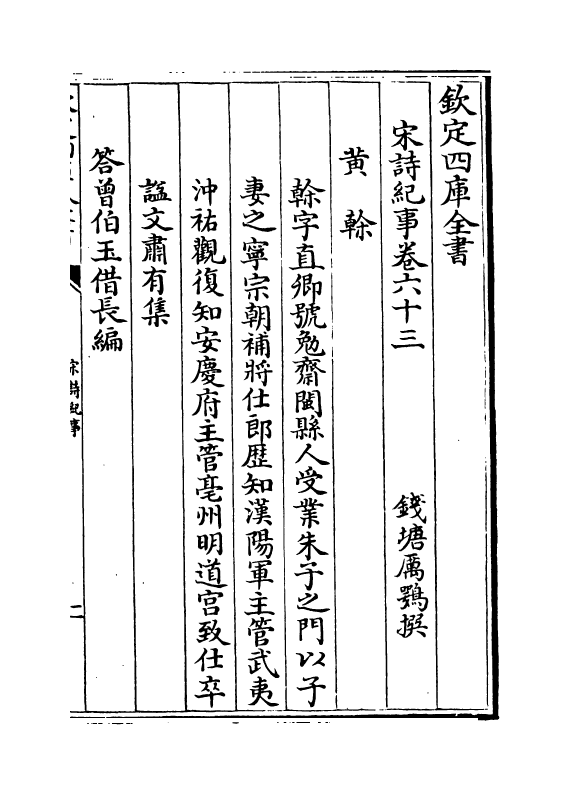 欽定四庫全書
宋詩紀事卷六十三
錢塘厲鶚撰
黄榦
榦字直卿號勉齋閩縣人受業朱子之門以子
妻之寧宗朝補將仕郎歴知漢陽軍主管武夷
沖祐觀復知安慶府主管亳州明道宫致仕卒
諡文肅有集
答曾伯玉借長編
宋詩紀事